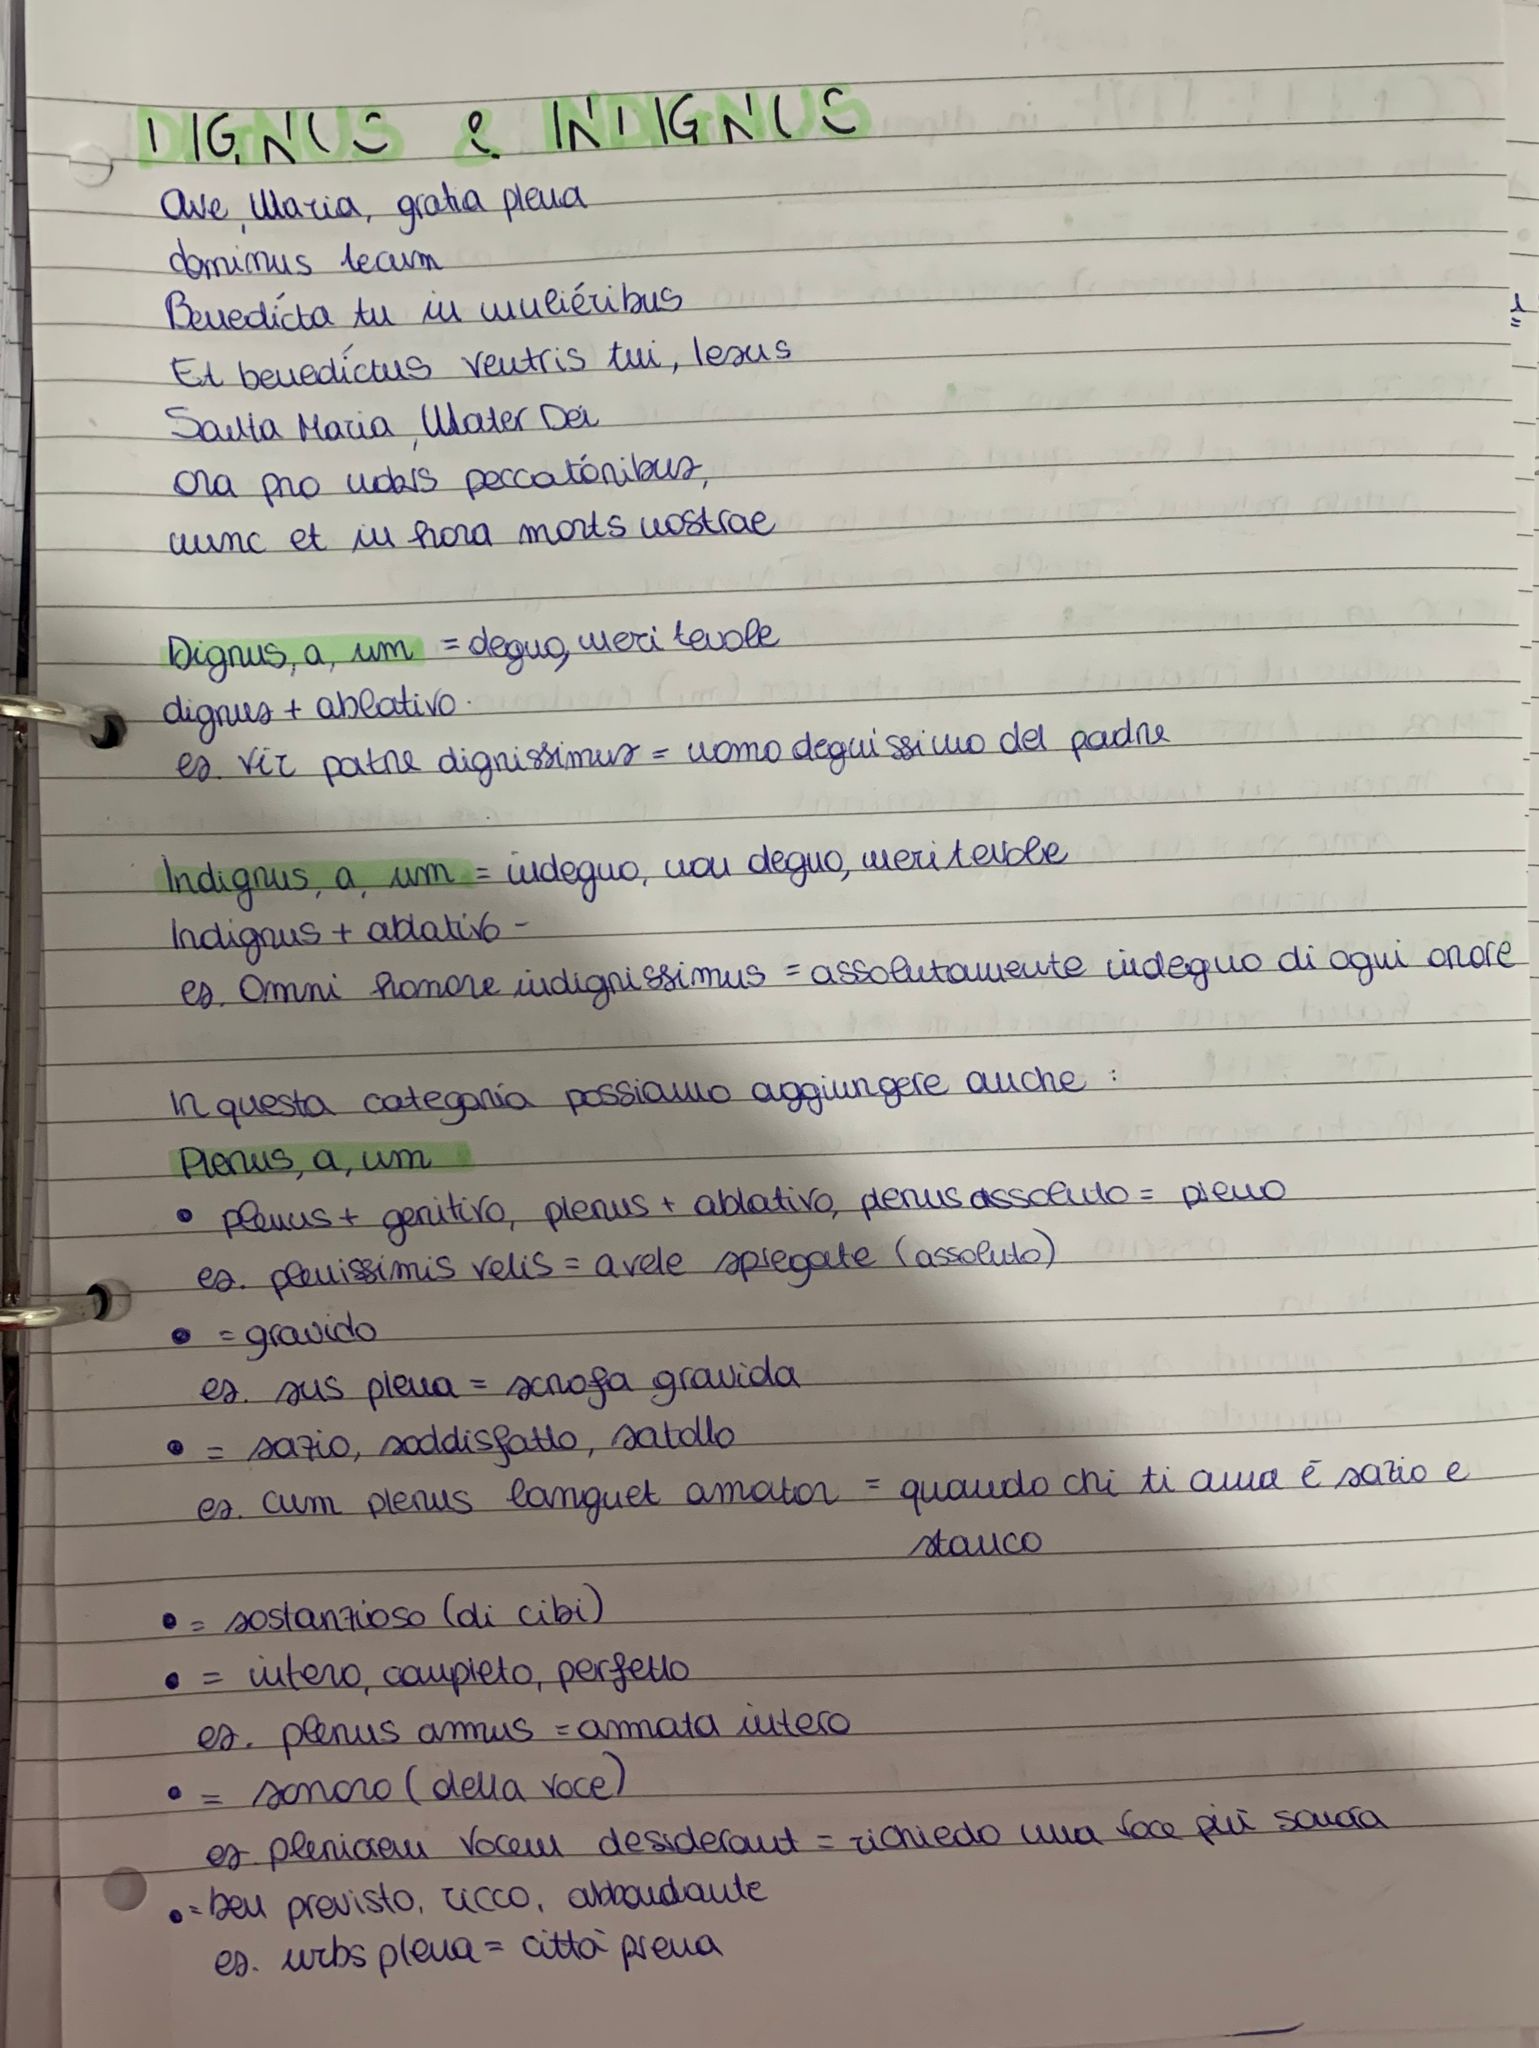 DIGNUS & INDIGNUS
Ave, Maria, gratia plena
dominus tecum
Benedícta tu in muliéribus
Et benedíctus ventris tui, Iesus
Santa Maria, Mater Dei
ora pro nobis peccatóribus,
nunc et in hora morts nostrae
Dignus, a, um = degno, meritevole
dignus + ablativo.
es. vir patre dignissimus = uomo degnissimo del padre
Indignus, a, um = indegno, non degno, meritevole
Indignus + ablativo -
es. Omni honore indignissimus = assolutamente indegno di ogni onore
In questa categoria possiamo aggiungere anche :
Plenus, a, um
• plenus + genitivo, plenus + ablativo, plenus assoluto = pieno
es. plenissimis velis = a vele spiegate (assoluto)
• = gravido
es. sus plena = scrofa gravida
• = sazio, soddisfatto, satollo
es. cum plenus languet amator = quando chi ti ama è sazio e
stanco
• = sostanzioso (di cibi)
• = intero, completo, perfetto
es. plenus annus = annata intero
• = sonoro (della voce)
es. pleniorem vocem desiderant = richiedo una voce più sonora
• = ben previsto, ricco, abbondante
es. urbs plena = città piena